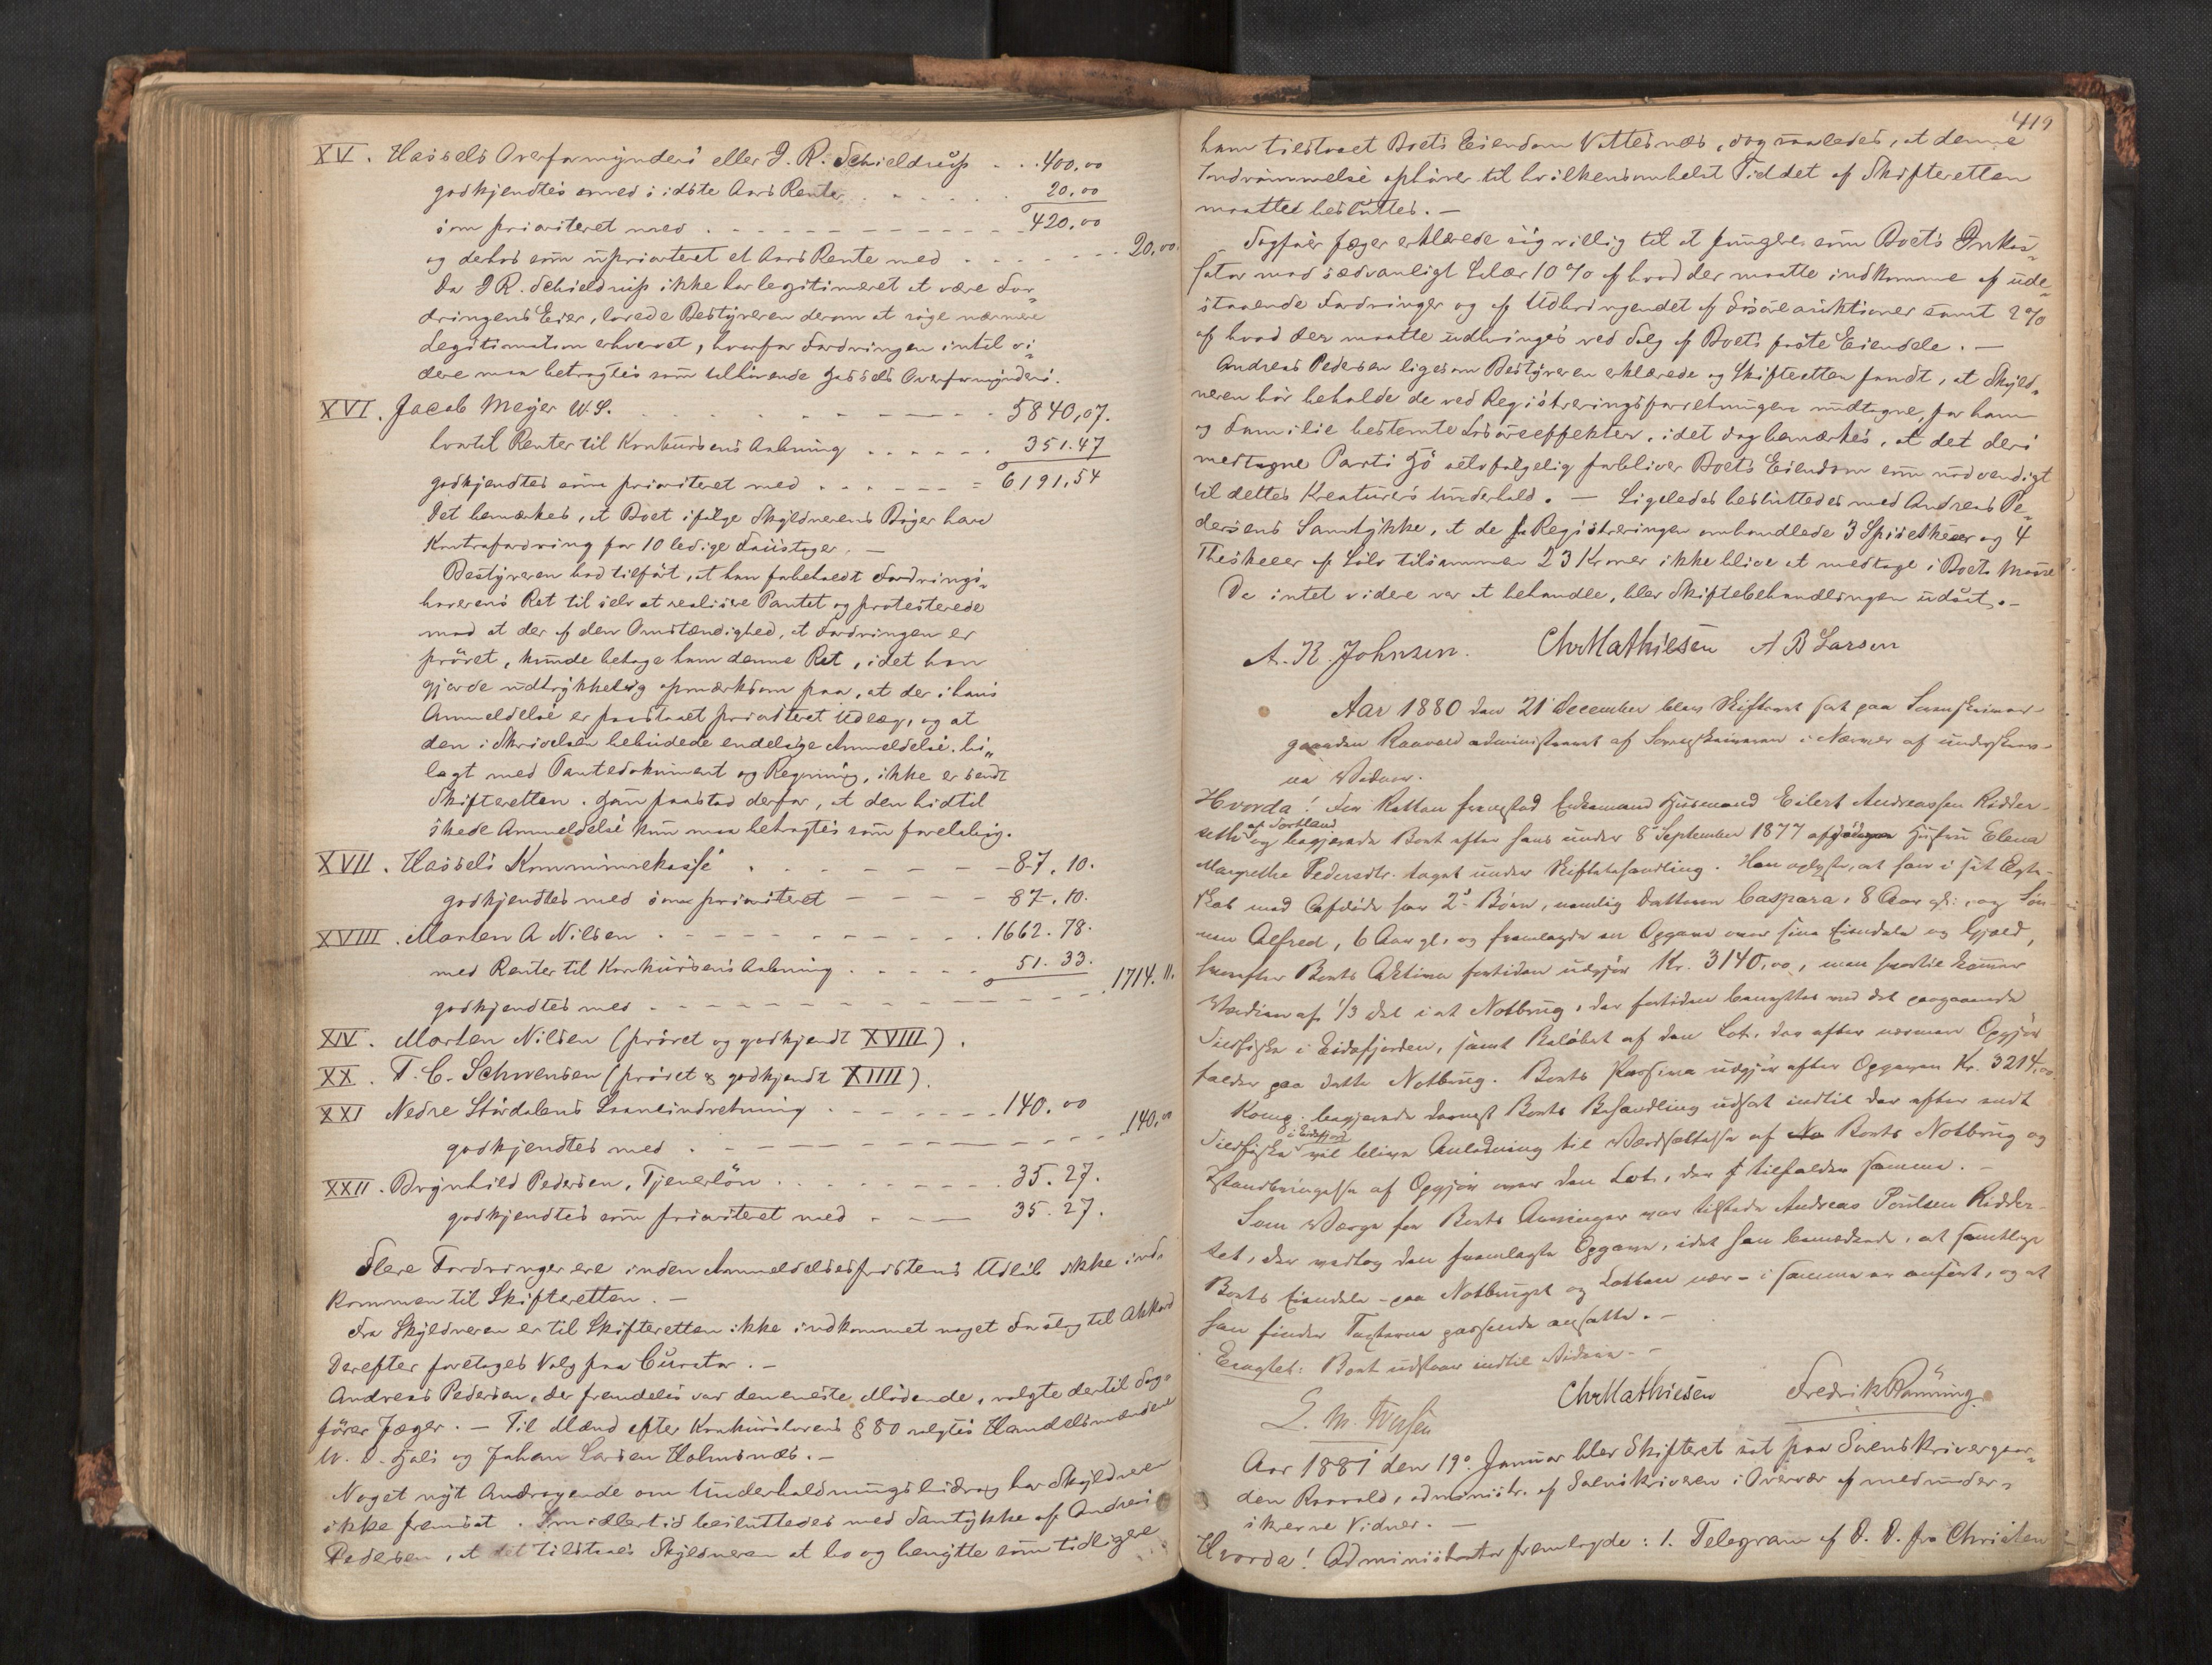 XV. Hassels Overformynderi eller J. R. Schieldrup . . . 400,00
godkjendtes med i idste Aars Rente . . . . . . 20.00
som prioriteret med . . . . . . . . 420,00
og derhos som uprioriteret et Aars Rente med . . . . . . 20,00.
Da J R. Schieldrup ikke har legitimeret at være For-
dringens Eier, lovede Bestyreren derom at søge nærmere
Legitimation erhvervet, hvorfor Fordringen intil vi-
dere maa betragtes som tilhørende Hassels Overformynderi.
XVI. Jacob Meyer W. S. . . . . . . . 5840,07.
hvortil Renter til Konkursens Aabning . . . . . . 351.47
godkjendtes som prioriteret med . . . . . . = 6191,54
Det bemærkes, at Boet ifølge Skyldnerens Bøger have
Kontrafordring for 10 ledige Faustager. —
Bestyreren bad tilført, at han forbeholdt Fordrings-
haverens Ret til selv at realisere Pantet og protesterede
mod at der af den Omstændighed, at Fordringen er
prøvet, kunde betage ham denne Ret, idet han
gjorde udtrykkelig opmærksom paa, at der i hans
Anmeldelse er paastaaet prioriteret Udlæg, og at
den i Skrivelsen bebudede endelige Anmeldelse, bi-
lagt med Pantedokument og Regning, ikke er sendt
Skifteretten. Han paastod derfor, at den hidtil
skede Anmeldelse kun maa betragtes som foreløbig.
XVII. Hassels Kommunekasse . . . . . . 87, 10.
godkjendtes med som prioriteret — — — — 87, 10.
XVIII. Morten A Nilsen . . . . . . . 1662. 78.
med Renter til Konkursens Aabning . . . . . 51. 33.
godkjendtes med . . . . . . . . 1714. 11.
XIV. Morten Nilsen (prøvet og godkjendt XVIII).
XX. T. C. Schwensen (prøvet & godkjendt XIIII).
XXI Nedre Stördalens Laaneindretning . . . . . . 140. 00
godkjendtes med . . . . . . . . 140,00
XXII. Brynhild Pedersen, Tjenerløn . . . . . . 35. 27.
godkjendtes som prioriteret med . . . . 35. 27.
Flere Fordringer ere inden Anmeldelsesfristens Udløb ikke ind-
kommen til Skifteretten. —
Fra Skyldneren er til Skifteretten ikke indkommet noget Forslag til Akkord
Derefter foretoges Valg paa Curator. —
Andreas Pedersen, der fremdeles var den eneste Mødende, valgte dertil Sag-
fører Jæger. — Til Mænd efter Konkurslovens § 80 valgtes Handelsmændene
W. D. Hals og Johan Larsen Holmsnæs. —
Noget nyt Andragende om Underholdningsbidrag har Skyldneren
ikke fremsat. Imidlertid besluttedes med Samtykke af Andreas
Pedersen, at det tilstaaes Skyldneren at bo og benytte som tidligere
419
ham tilstaaet Boets Eiendom Vottesnæs, dog saaledes, at denne
Indrømmelse ophører til hvilkensomhelst Tid det af Skifteretten
maatte besluttes. —
Sagfører Jæger erklærede sig villig til at fungere som Boets Inkas-
sator mod sædvanligt Salær 10 % af hvad der maatte indkomme af ude-
staaende Fordringer og af Udbringendet af Løsøreauktioner samt 2 %
af hvad der maatte udbringes ved Salg af Boets faste Eiendele. —
Andreas Pedersen ligesom Bestyreren erklærede og Skifteretten fandt, at Skyld-
neren bør beholde de ved Registreringsforretningen undtagne, for ham
og Familie bestemte Løsøreeffekter, idet dog bemærkes, at det deri
medtagne Parti Hö selvfølgelig forbliver Boets Eiendom som nødvendigt
til dettes Kreaturers Underhold. — Ligeledes besluttedes med Andreas Pe-
dersens Samtykke, at de i Registreringen omhandlede 3 Spiseskeer og 4
Theskeer af Sølv tilsammen 23 Kroner ikke blive at medtage i Boets Masse
Da intet videre var at behandle, blev Skiftebehandlingen udsat. —
A. K. Johnsen. Chr Mathiesen A B Larsen
Aar 1880 den 21 December blev Skifteret sat paa Sorenskriver-
gaarden Raavold administreret af Sorenskriveren i Nærvær af underskrev-
ne Vidner.
Hvorda! For Retten fremstod Enkemand Husmand Eilert Andreassen Ridder-
seth af Sortland og begjærede Boet efter hans under 8 September 1877 afdøde Hustru Elena
Margrethe Pedersdtr. taget under Skiftebehandling. Han oplyste, at han i sit Ægte-
skab med Afdøde har 2 Børn, nemlig Datteren Caspara, 8 Aar gl. og Søn-
nen Alfred, 6 Aar gl. og fremlagde en Opgave over sine Eiendele og Gjæld,
hvorefter Boets Aktiva fortiden udgjør Kr. 3140,00, men hvortil kommer
Værdien af 1/3 Del i et Notbrug, der fortiden benyttes ved det paagaaende
Sildfiske i Eidsfjorden, samt Beløbet af den Lot, der efter nærmere Opgjør
falder paa dette Notbrug. Boets Passiva udgjør efter Opgaven Kr. 3214,00
Komp. begjærede dernæst Boets Behandling udsat indtil der efter endt
Sildfiske i Eidsfjord vil blive Anledning til Værdsættelse af Boets Notbrug og
Istandbringelse af Opgjør over den Lot, der tilfalder samme. —
Som Værge for Boets Arvinger var tilstede Andreas Poulsen Ridder-
set, der vedtog den fremlagte Opgave, idet han bemærkede, at samtlige
Boets Eiendele — paa Notbruget og Lotten nær — i samme er anført, og at
han finder Taxterne passende ansatte. —
Eragtet: Boet udstaar indtil Videre. —
L. M. Iversen Chr Mathiesen Fredrik Rønning
Aar 1881 den 19. Januar blev Skifteret sat paa Sorenskrivergaar-
den Raavold, administr. af Sorenskriveren i Overvær af medunder-
skrevne Vidner. —
Hvorda! Administrator fremlagde: 1. Telegram af D. D. fra Christen